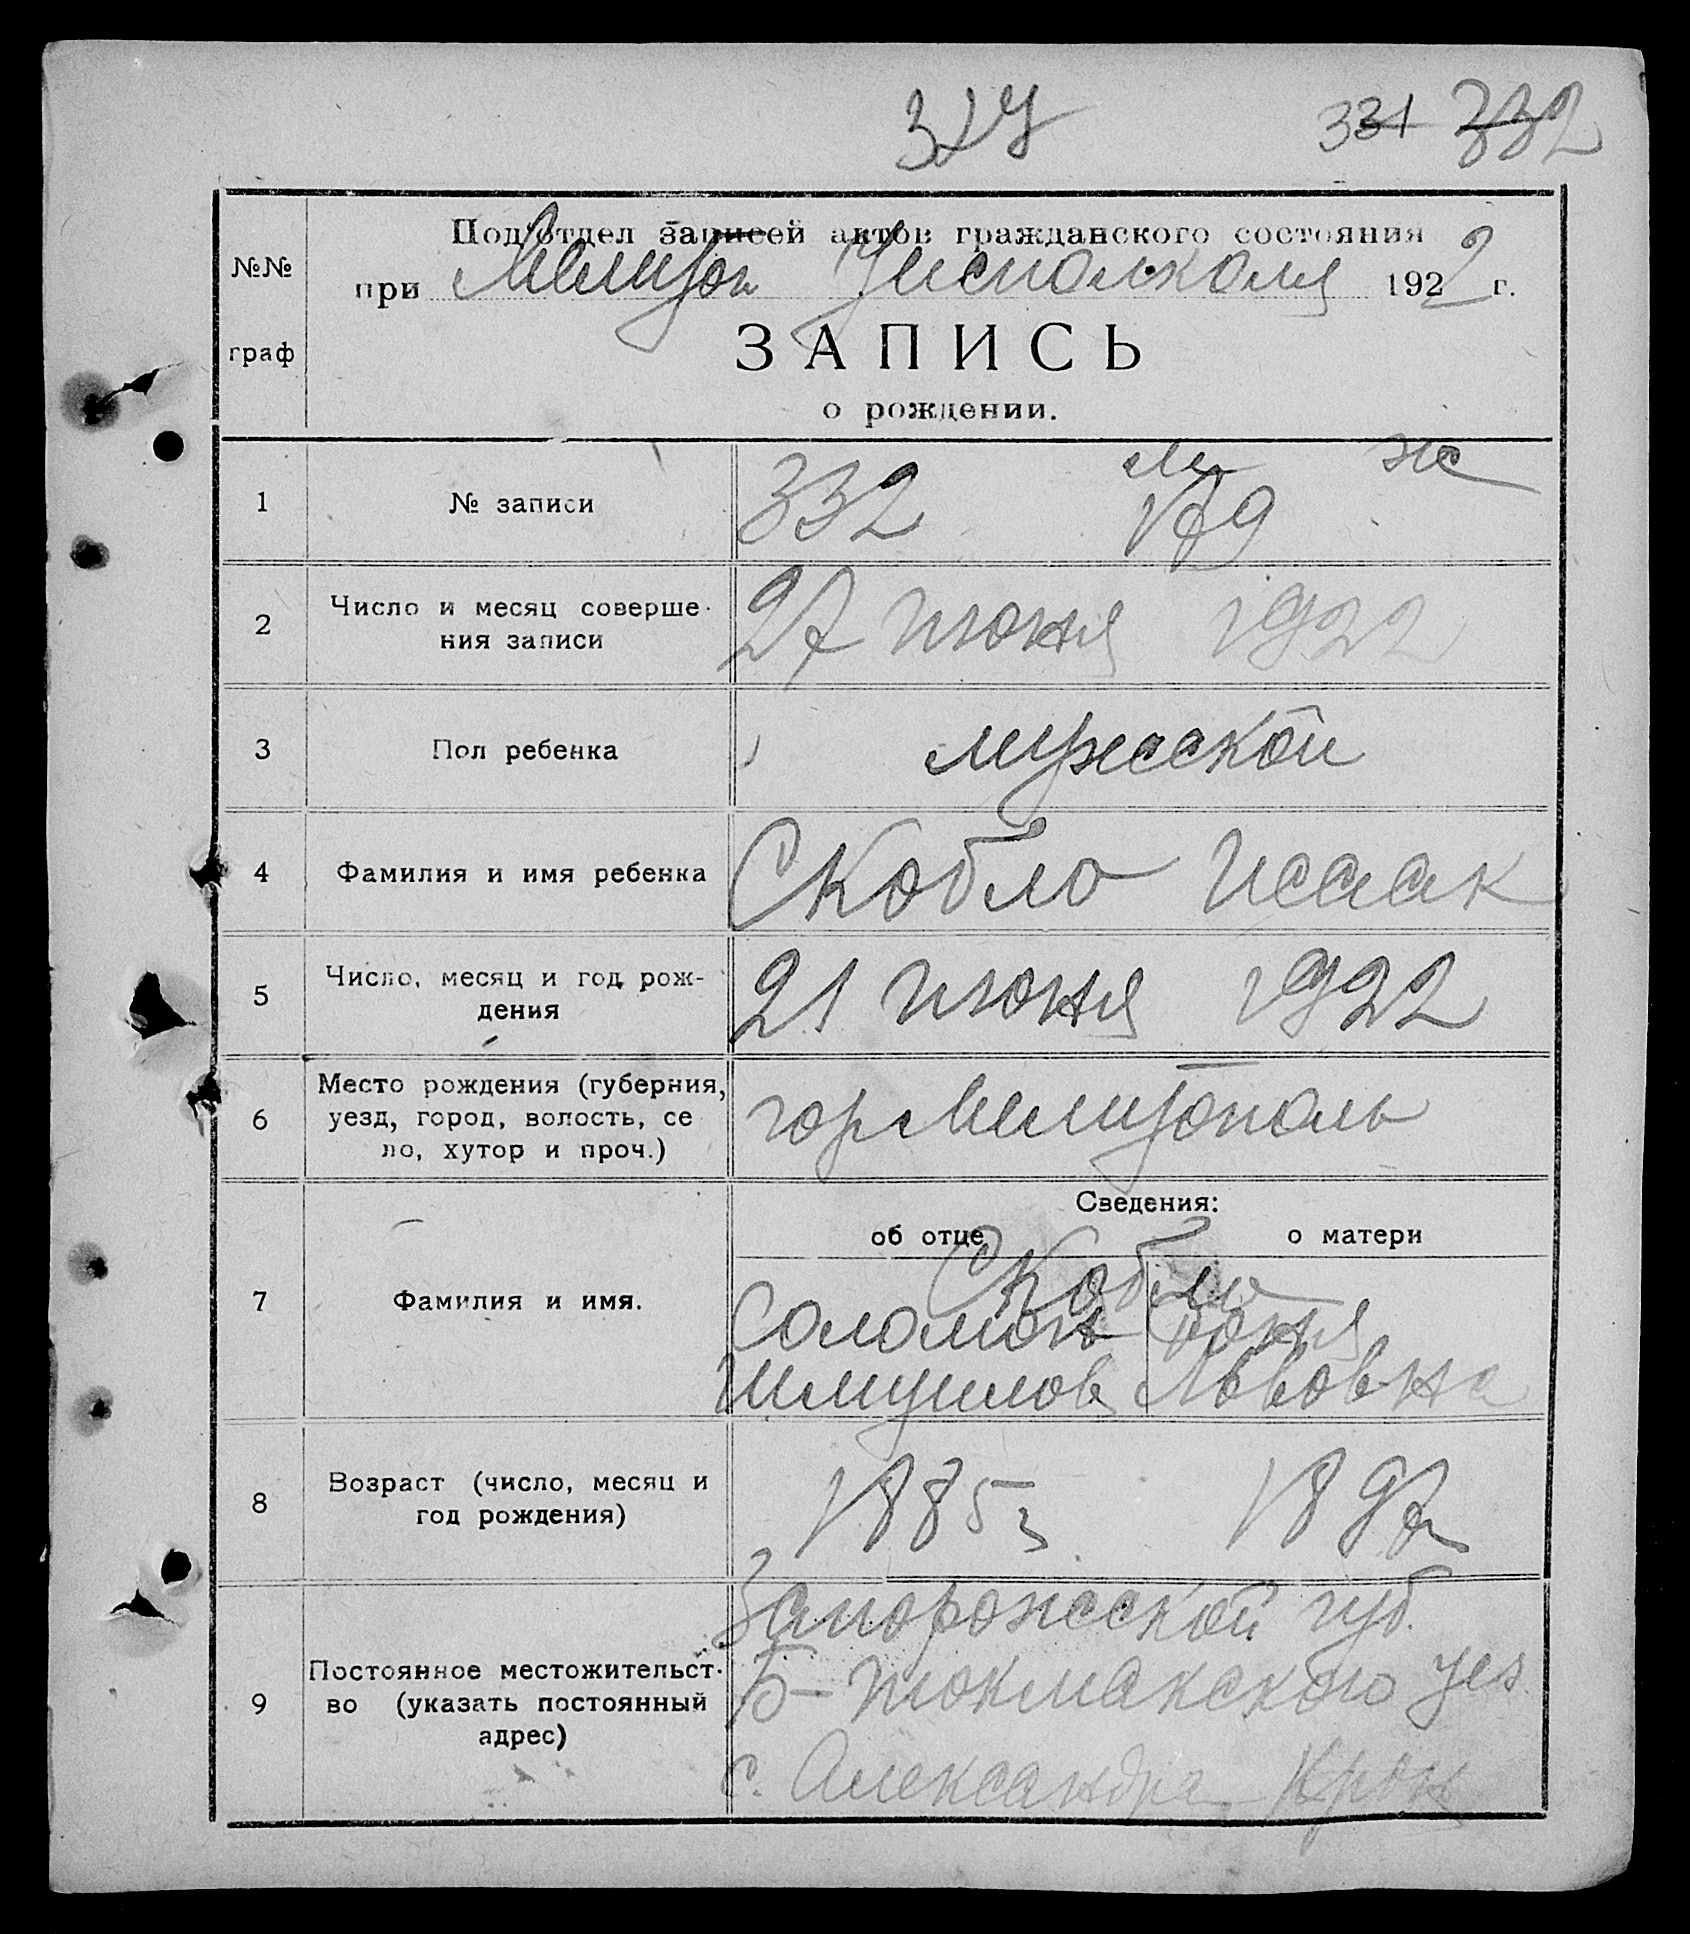 327 331 332
Под'отдел записей актов гражданского состояния
при Мелитоп Уисполкома 1922 г.
№№
граф
ЗАПИСЬ
о рождении.
м ж
1 № записи 332 179
2 Число и месяц соверше-
ния записи 27 июня 1922
3 Пол ребенка мужской
4 Фамилия и имя ребенка Скобло Исаак
5 Число, месяц и год рож-
дения 21 июня 1922
6 Место рождения (губерния,
уезд, город, волость, се
ло, хутор и проч.) гор Мелитополь
Сведения:
об отце о матери
Скобло
7 Фамилия и имя. Соломон Соня
Шмуилов Львовна
8 Возраст (число, месяц и
год рождения) 1885 г 1897
Запорожской губ.
9 Постоянное местожительст-
во (указать постоянный
адрес) Б-Токмакского уез
с. Александро